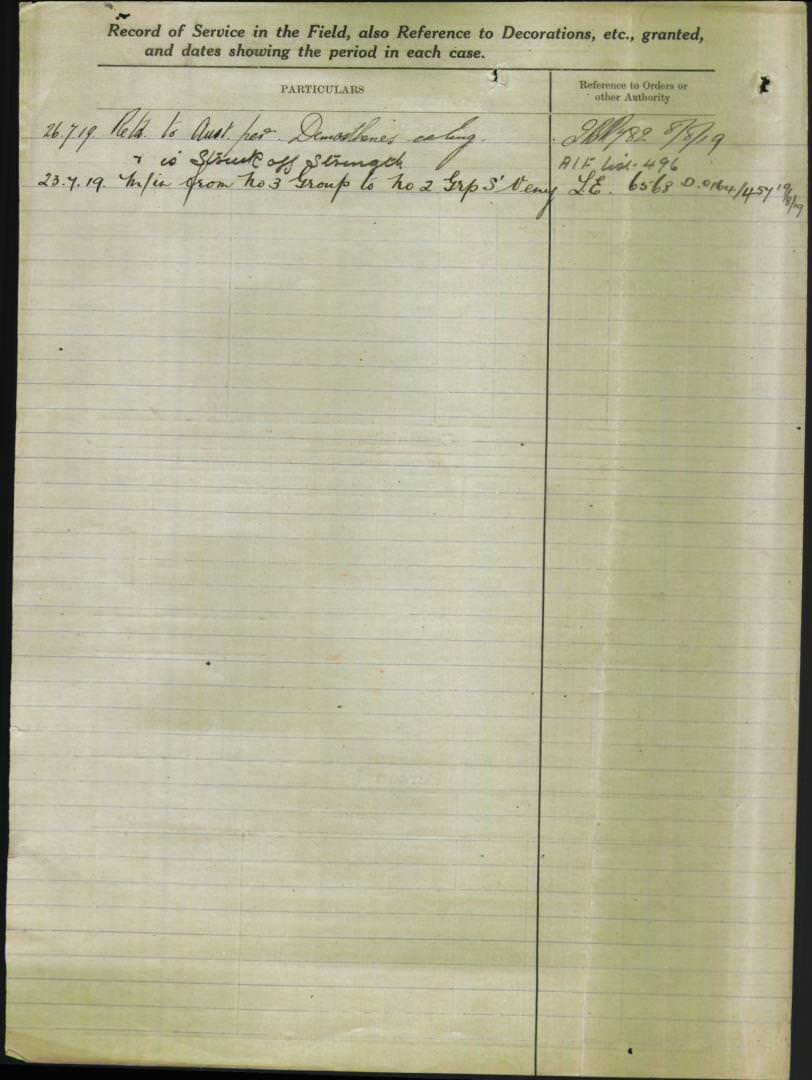 Record of Service in the Field, also Reference to Decorations, etc., granted,
and dates showing the period in each case.
PARTICULARS
Reference to Orders or
other Authority
26.7.19 Retd. to Aust. per. Demosthenes
782 8/8/19
" is Struck off Strength
AIF List 496
23.7.19. M/in from No 3 Group to No 2 Grp S' Veny
LE. 6568 D.O164/457